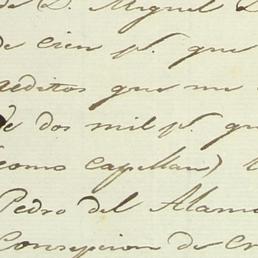 de D. Miguel
de cien p.s que
reditos que me
de dos mil p.s qu
(como capellan)
Pedro del Alamo
Consepcion de Cr